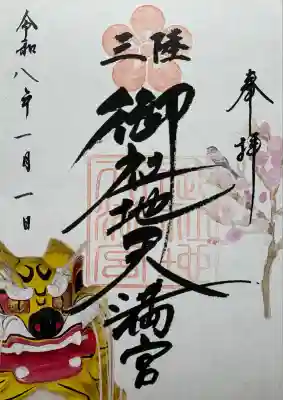 奉拝
三陸
御社地天満宮
令和八年一月一日